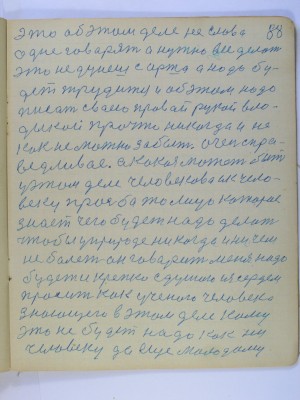 это об этом деле не слова 88
одне говорят а нужно все делат
это не думеш с арта а надо бу-
дет трудится и об этом надо
писат своею правай рукой вло-
дыкой про что никогда и не
как не можно забыт. очен спра-
ведливае. а какая можот быт
у этом деле человекова ик чело-
веку прозба то лицо каторае
знает чего будет надо делат
чтобы у природе никогда и ни чем
не балет он говорит меня надо
будет и крепко с душою и сердем
просит как ученого человека
знающего в этом деле каму
это не будет надо как ни
человеку да еще молодаму